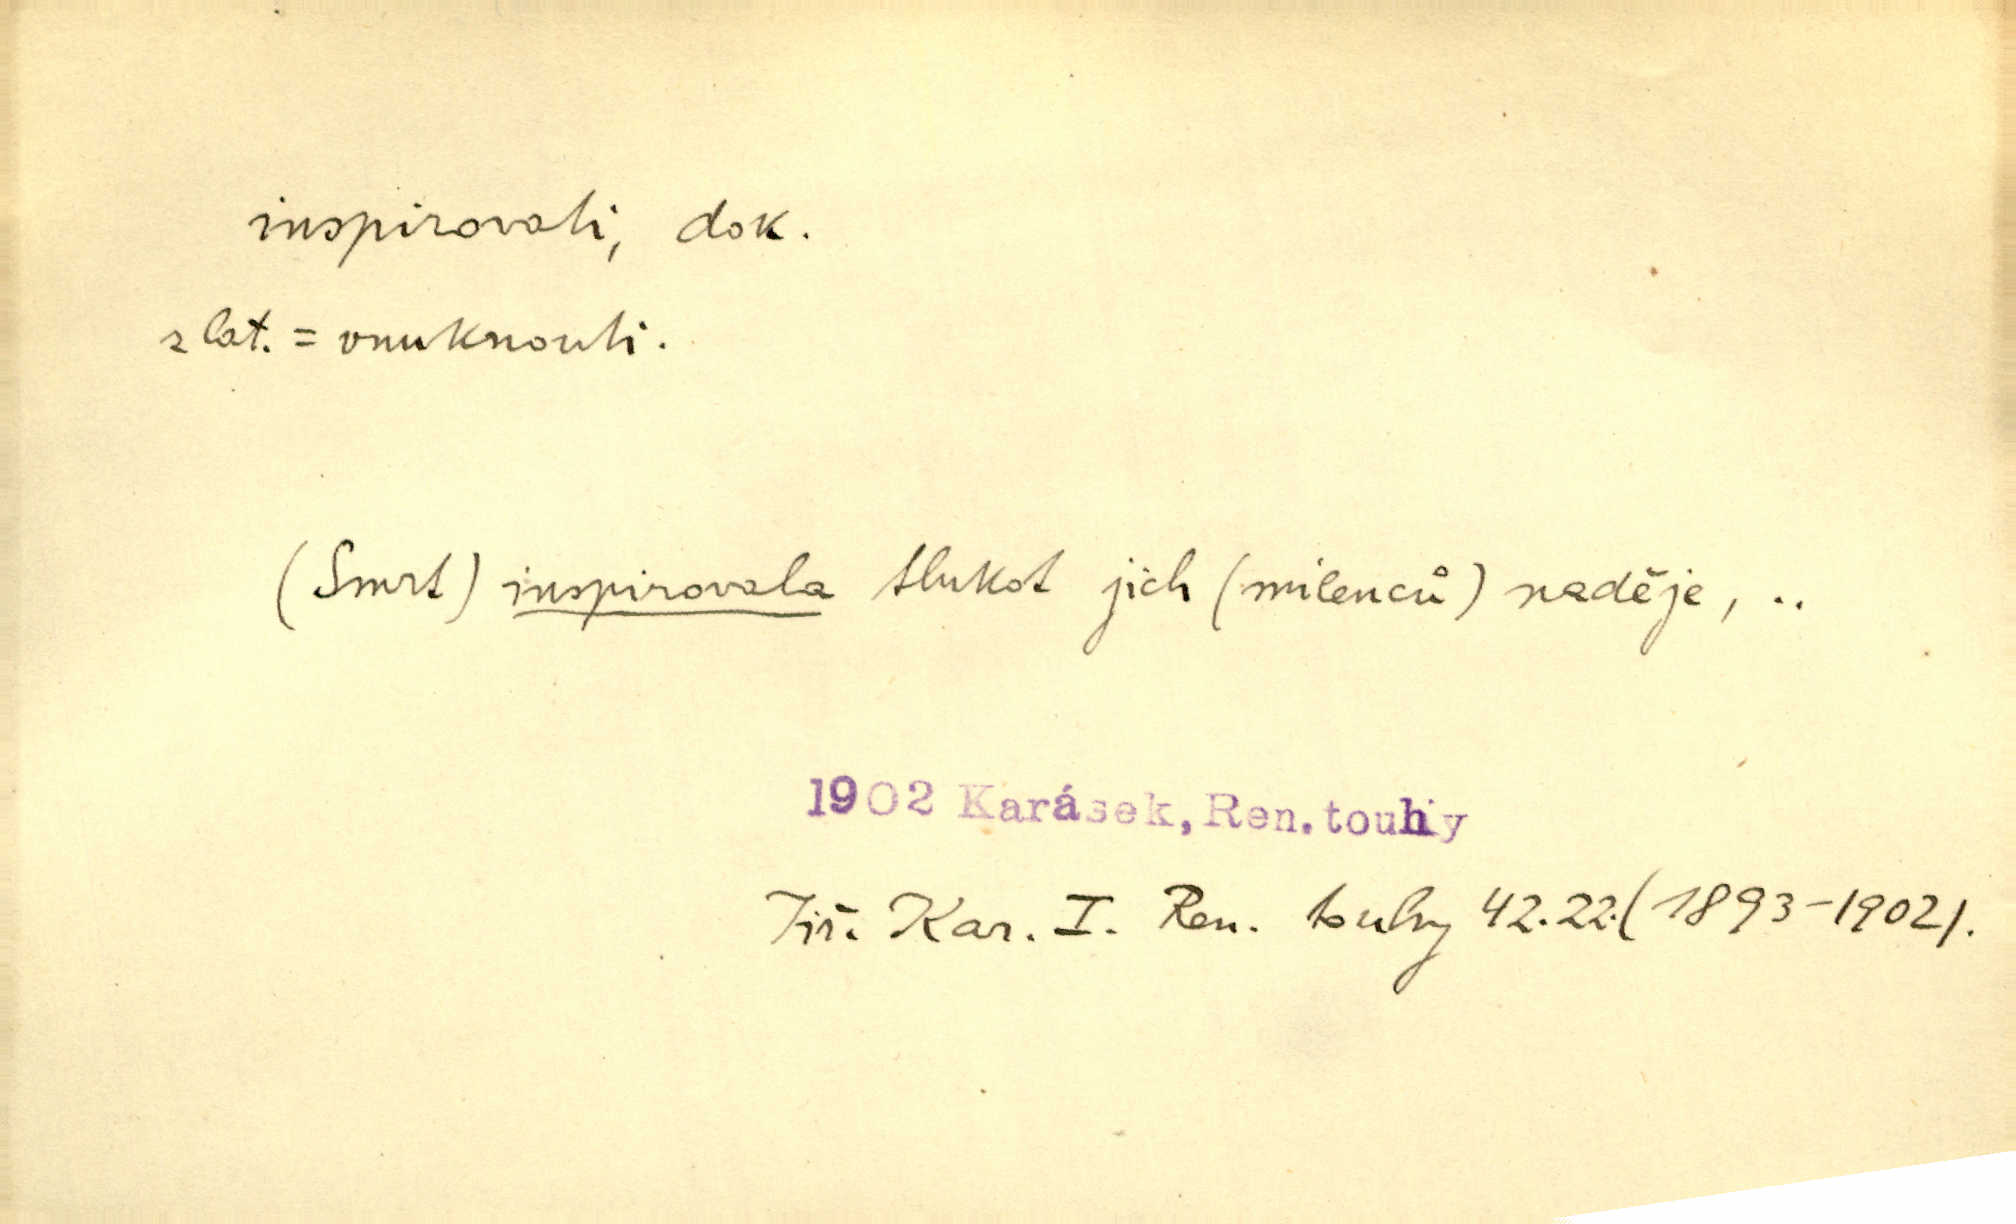 inspirovati, dok.
z lat. = vnuknouti.
(Smrt) inspirovala tlukot jich (milenců) naděje, ..
1902 Karásek, Ren. touhy
Jiř. Kar. I. Ren. touhy 42.22.(1893-1902).